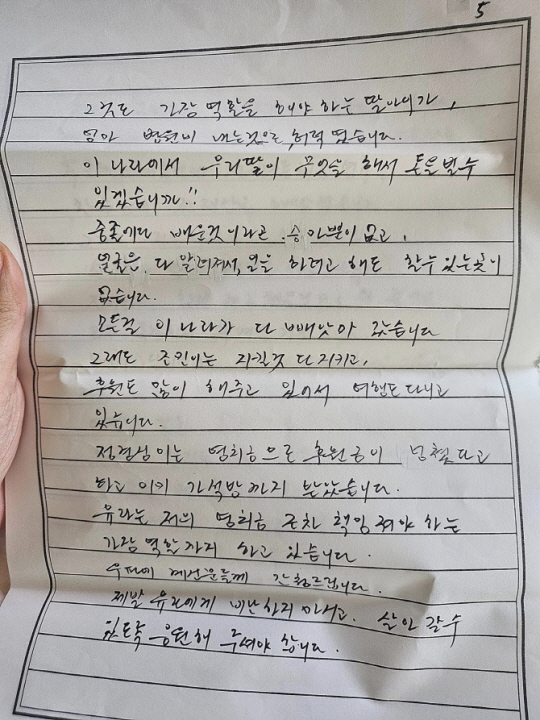 5
그것도 가장 역활을 해야 하는 딸아이가,
엄마 병원비 내는것으로 허덕 였습니다.
이 나라에서 우리딸이 무엇을 해서 돈을 벌수
있겠습니까!!
중졸에다 배운것이라곤 승마뿐이 없고,
얼굴은 다 알려져서, 일을 하려고 해도 할수 있는곳이
없습니다.
모든걸 이 나라가 다 빼앗아 갔습니다
그래도 조민이는 지킬것 다 지키고,
후원도 많이 해주고 있어서 여행도 다니고
있습니다.
정경심이는 영치금으로 후원금이 넘쳤다고
하고 이미 가석방까지 받았습니다.
유라는 저의 영치금 조차 책임 져야 하는
가장 역활까지 하고 있습니다.
우파에 계신분들께 간청드립니다.
제발 유라에게 비난하지 마시고. 살아 갈수
있도록 응원해 주셔야 합니다.